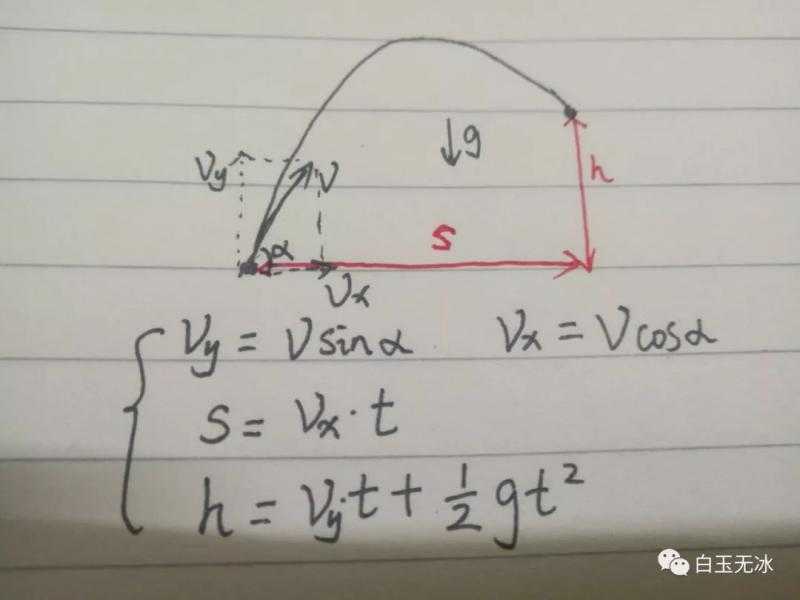 Vy
V
↓g
h
α
s
Vx
Vy = Vsinα Vx = Vcosα
s = Vx · t
h = Vyt + 1/2 gt²
白玉无冰